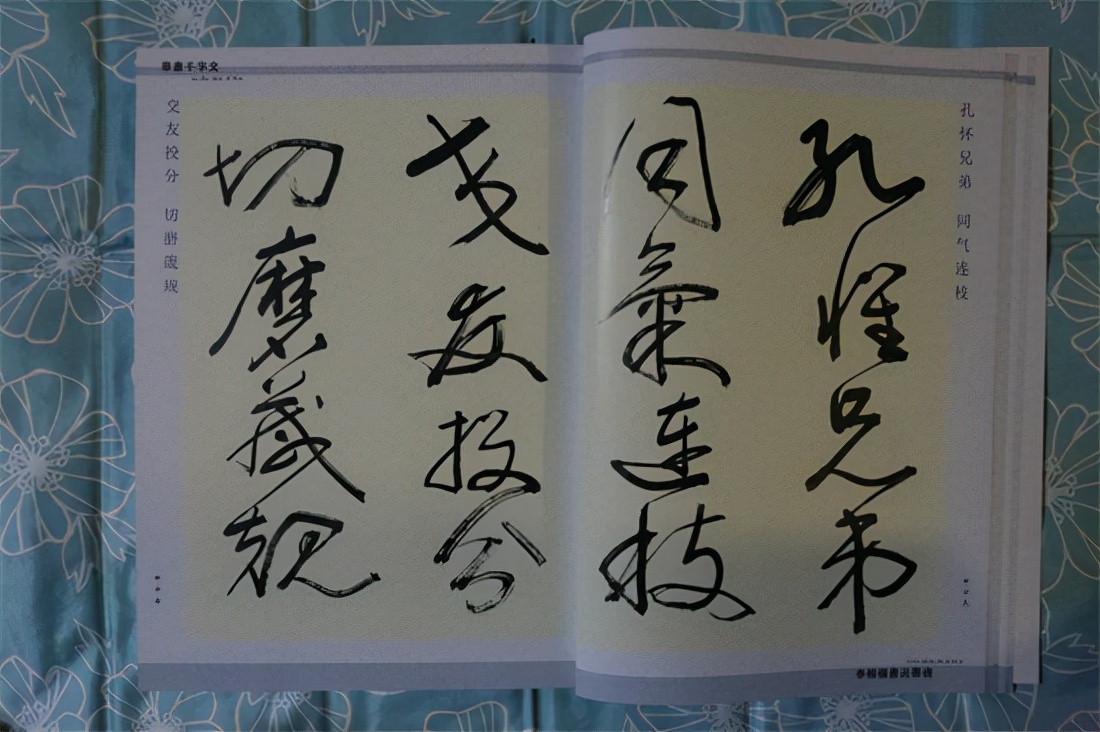 孔怀兄弟
同气连枝
孔懷兄弟
同氣連枝
交友投分
切磨箴規
交友投分
切磨箴规
草書千字文